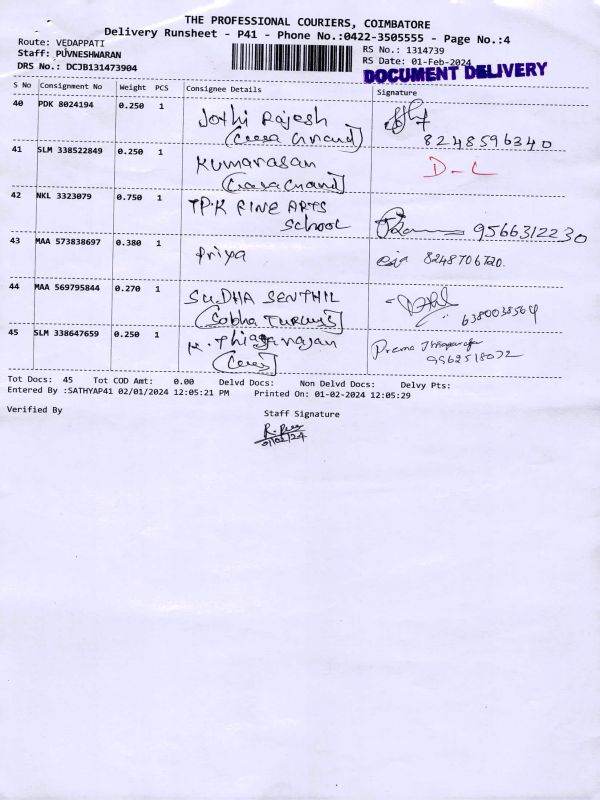 THE PROFESSIONAL COURIERS, COIMBATORE
Delivery Runsheet - P41 - Phone No.:0422-3505555 - Page No.:4
Route: VEDAPPATI
Staff: PUVNESHWARAN
DRS No.: DCJB131473904
RS No.: 1314739
RS Date: 01-Feb-2024
DOCUMENT DELIVERY
S No Consignment No Weight PCS Consignee Details Signature
40 PDK 8024194 0.250 1 Jothi Rajesh
8248596340
41 SLM 338522849 0.250 1 Kumarasan D-L
42 NKL 3323079 0.750 1 TP.K FINE ARTS
School 9566312230
43 MAA 573838697 0.380 1 Priya 8248706720.
44 MAA 569795844 0.270 1 SUDHA SENTHIL
(Sobha Turnis) 6380038564
45 SLM 338647659 0.250 1 K. Thiagarajan Prema
9962518072
Tot Docs: 45 Tot COD Amt: 0.00 Delvd Docs: Non Delvd Docs: Delvy Pts:
Entered By :SATHYAP41 02/01/2024 12:05:21 PM Printed On: 01-02-2024 12:05:29
Verified By Staff Signature